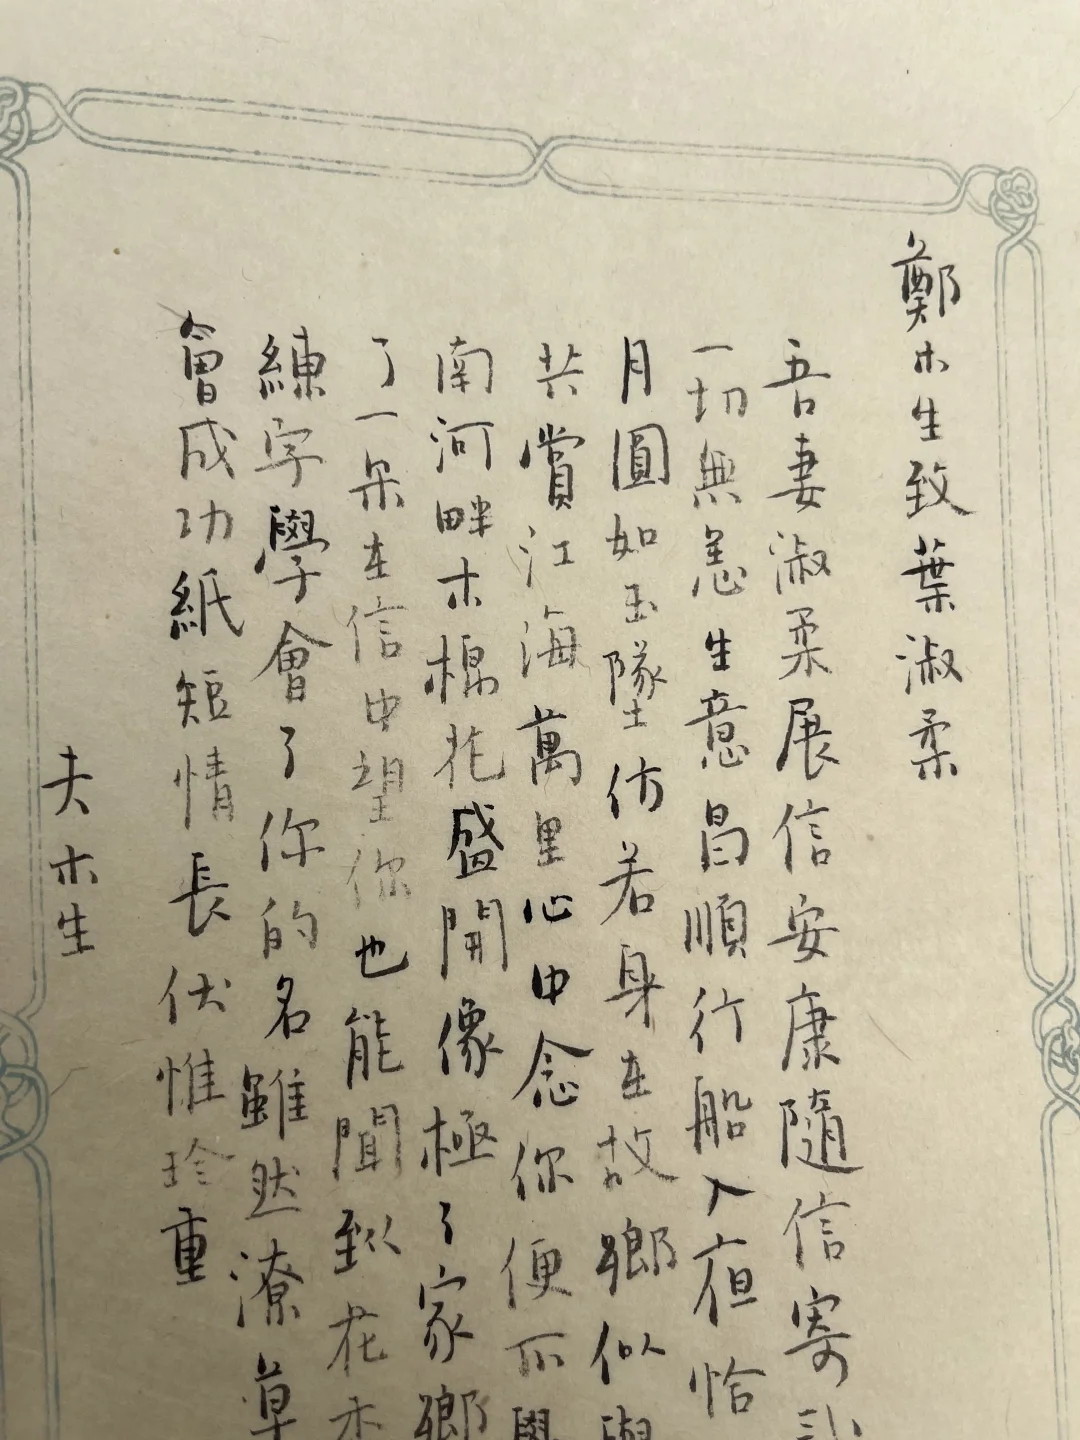 鄭木生致葉淑柔
吾妻淑柔展信安康隨信寄
一切無恙生意昌順行船入夜恰
月圓如玉墜仿若身在故鄉似與
共賞江海萬里心中念你便不與
南河畔木棉花盛開像極了家鄉
了一朵在信中望你也能聞到花
練字學會了你的名雖然潦草
會成功紙短情長伏惟珍重
夫木生